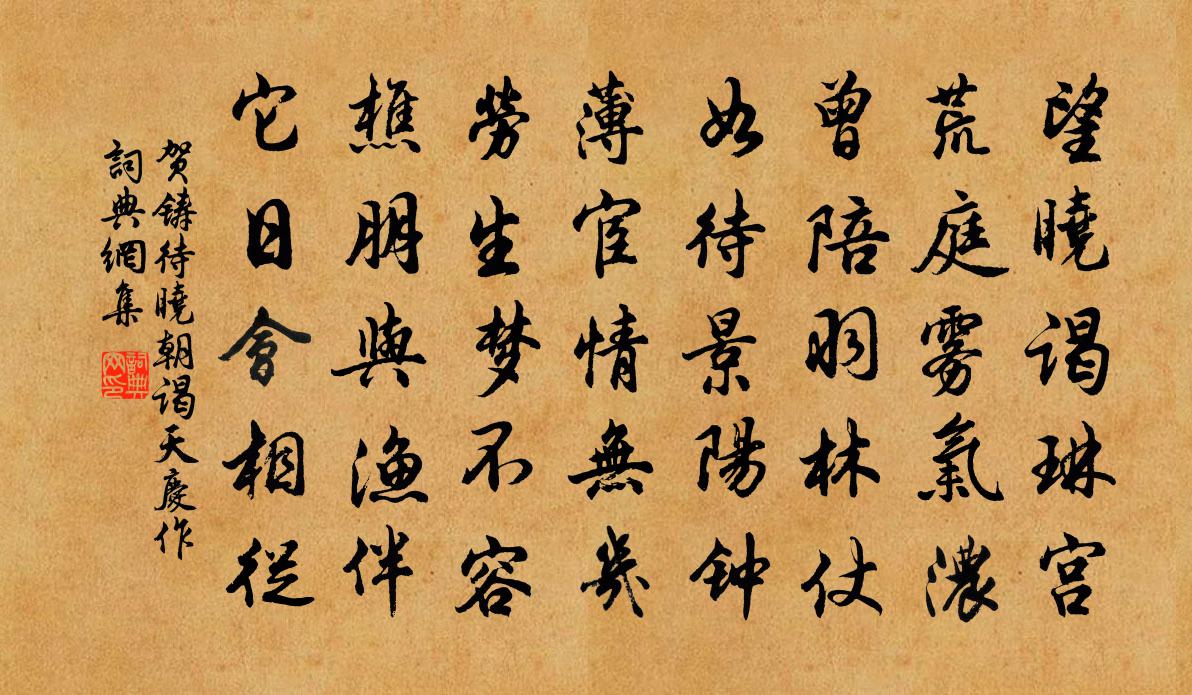 望曉谒琳宫
荒庭雾氣濃
曾陪羽林仗
如待景陽钟
薄宦情無幾
勞生梦不容
樵朋與漁伴
它日會相從
贺鑄待曉朝谒天慶作
詞典網集
詞典网印